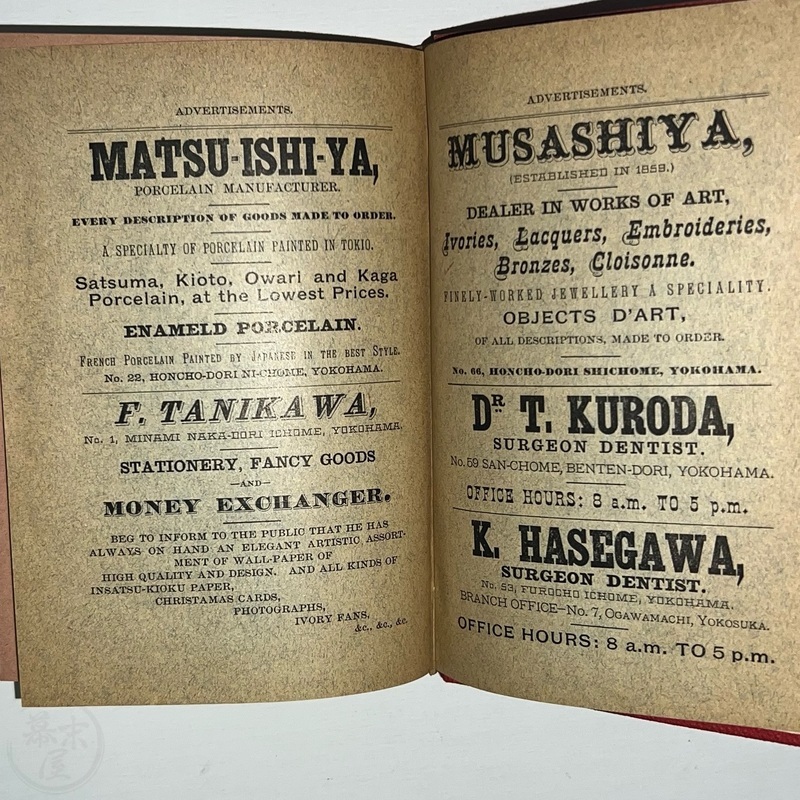 ADVERTISEMENTS.
MATSU-ISHI-YA,
PORCELAIN MANUFACTURER.
EVERY DESCRIPTION OF GOODS MADE TO ORDER.
A SPECIALTY OF PORCELAIN PAINTED IN TOKIO.
Satsuma, Kioto, Owari and Kaga
Porcelain, at the Lowest Prices.
ENAMELD PORCELAIN.
FRENCH PORCELAIN PAINTED BY JAPANESE IN THE BEST STYLE.
No. 22, HONCHO-DORI NI-CHOME, YOKOHAMA.
F. TANIKAWA,
No. 1, MINAMI NAKA-DORI ICHOME, YOKOHAMA.
STATIONERY, FANCY GOODS
—AND—
MONEY EXCHANGER.
BEG TO INFORM TO THE PUBLIC THAT HE HAS
ALWAYS ON HAND AN ELEGANT ARTISTIC ASSORT-
MENT OF WALL-PAPER OF
HIGH QUALITY AND DESIGN. AND ALL KINDS OF
INSATSU-KIOKU PAPER,
CHRISTAMAS CARDS,
PHOTOGRAPHS,
IVORY FANS,
&c., &c., &c.
ADVERTISEMENTS.
MUSASHIYA,
(ESTABLISHED IN 1858.)
DEALER IN WORKS OF ART,
Ivories, Lacquers, Embroideries,
Bronzes, Cloisonne.
FINELY-WORKED JEWELLERY A SPECIALITY.
OBJECTS D'ART,
OF ALL DESCRIPTIONS, MADE TO ORDER.
No. 66, HONCHO-DORI SHICHOME, YOKOHAMA.
DR T. KURODA,
SURGEON DENTIST.
No. 59 SAN-CHOME, BENTEN-DORI, YOKOHAMA.
OFFICE HOURS: 8 a.m. TO 5 p.m.
K. HASEGAWA,
SURGEON DENTIST.
No. 53, FUROCHO ICHOME, YOKOHAMA.
BRANCH OFFICE—No. 7, OGAWAMACHI, YOKOSUKA.
OFFICE HOURS: 8 a.m. TO 5 p.m.
幕末屋